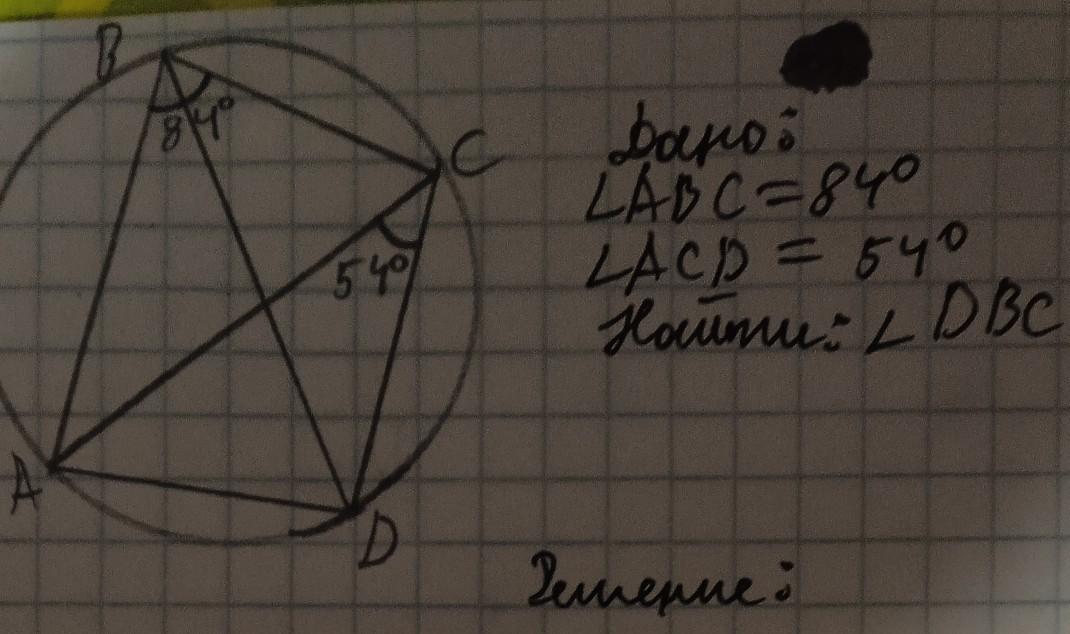 B
84°
C
54°
A
D
Дано:
∠ABC = 84°
∠ACD = 54°
Найти: ∠DBC
Решение: